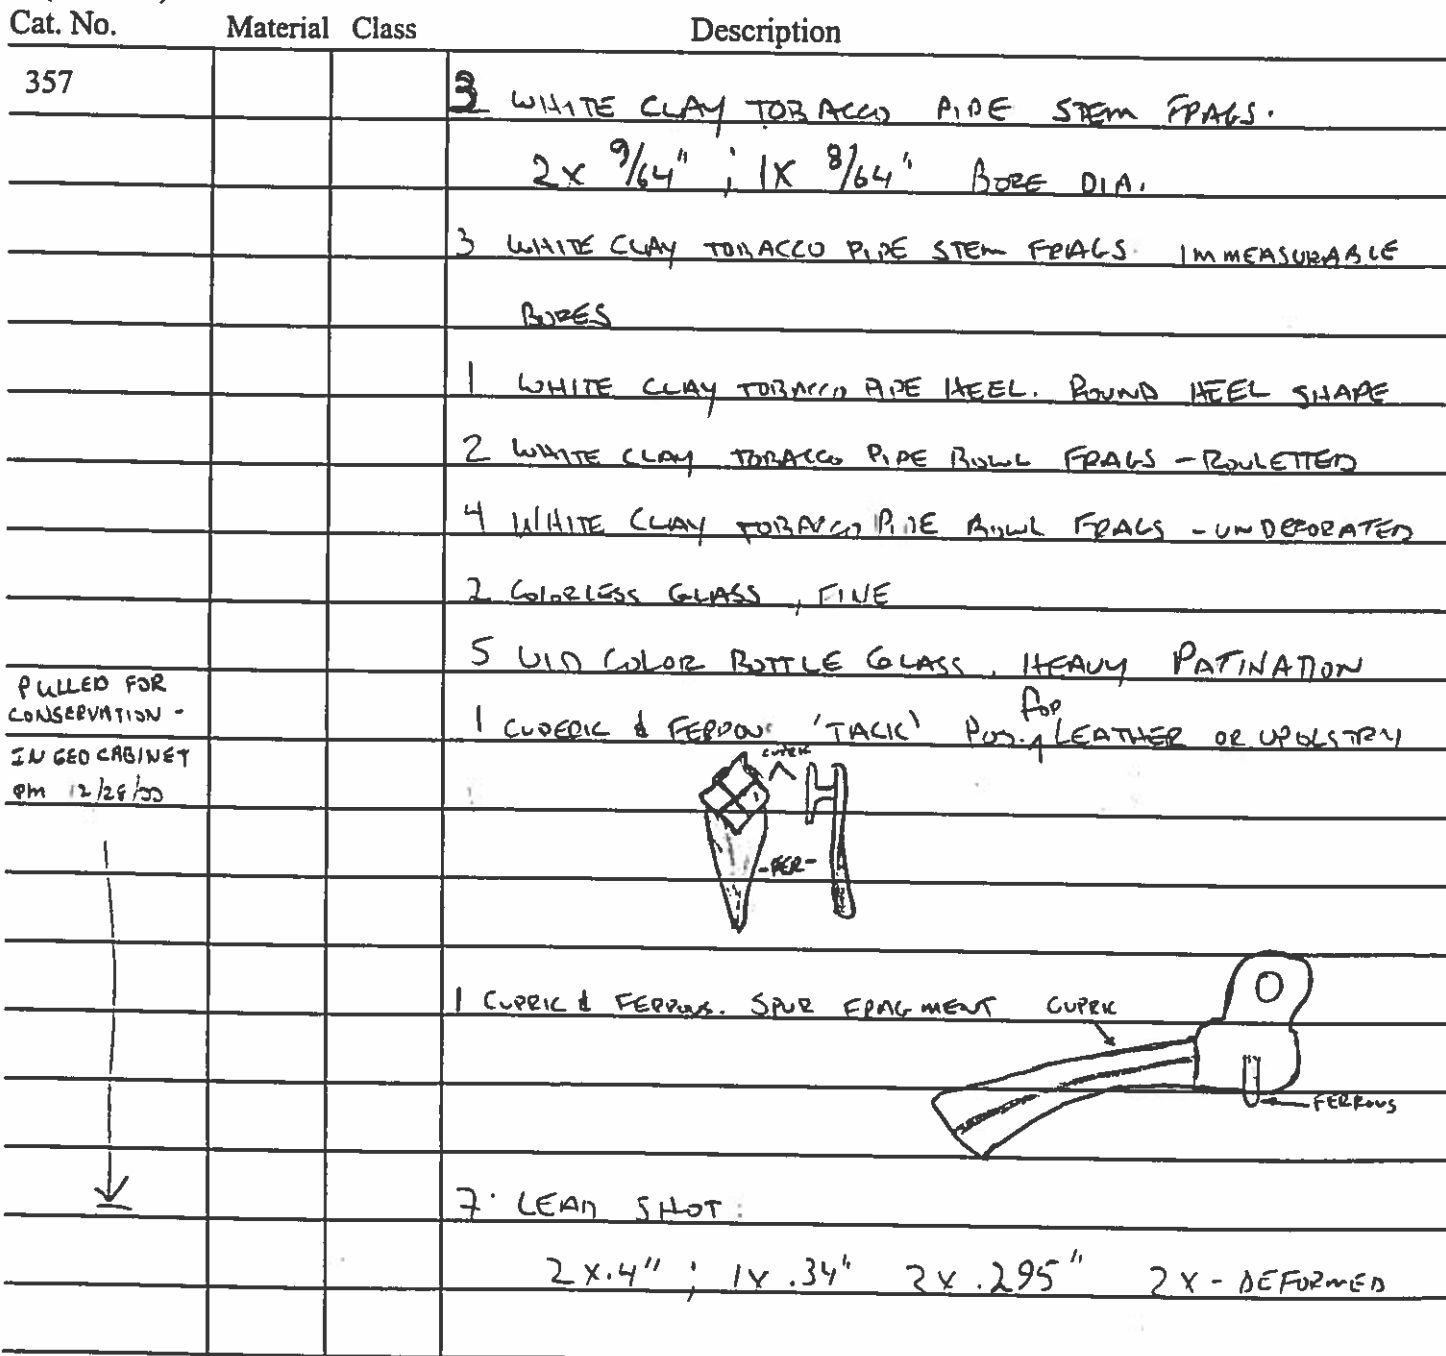 Cat. No. Material Class Description
357
3 WHITE CLAY TOBACCO PIPE STEM FRAGS.
2x 9/64" ; 1x 8/64" BORE DIA.
3 WHITE CLAY TOBACCO PIPE STEM FRAGS. IMMEASURABLE
BORES
1 WHITE CLAY TOBACCO PIPE HEEL. ROUND HEEL SHAPE
2 WHITE CLAY TOBACCO PIPE BOWL FRAGS - ROULETTED
4 WHITE CLAY TOBACCO PIPE BOWL FRAGS - UNDECORATED
2 COLORLESS GLASS, FINE
5 UID COLOR BOTTLE GLASS, HEAVY PATINATION
PULLED FOR
CONSERVATION -
IN GEO CABINET
pm 12/28/00
1 CUPERIC & FERROUS 'TACK' POS. for LEATHER OR UPOLSTRY
CUPRIC
-FER-
1 CUPRIC & FERROUS. SPUR FRAGMENT CUPRIC
FERROUS
7 LEAD SHOT:
2x.4" ; 1x .34" 2x .295" 2x - DEFORMED